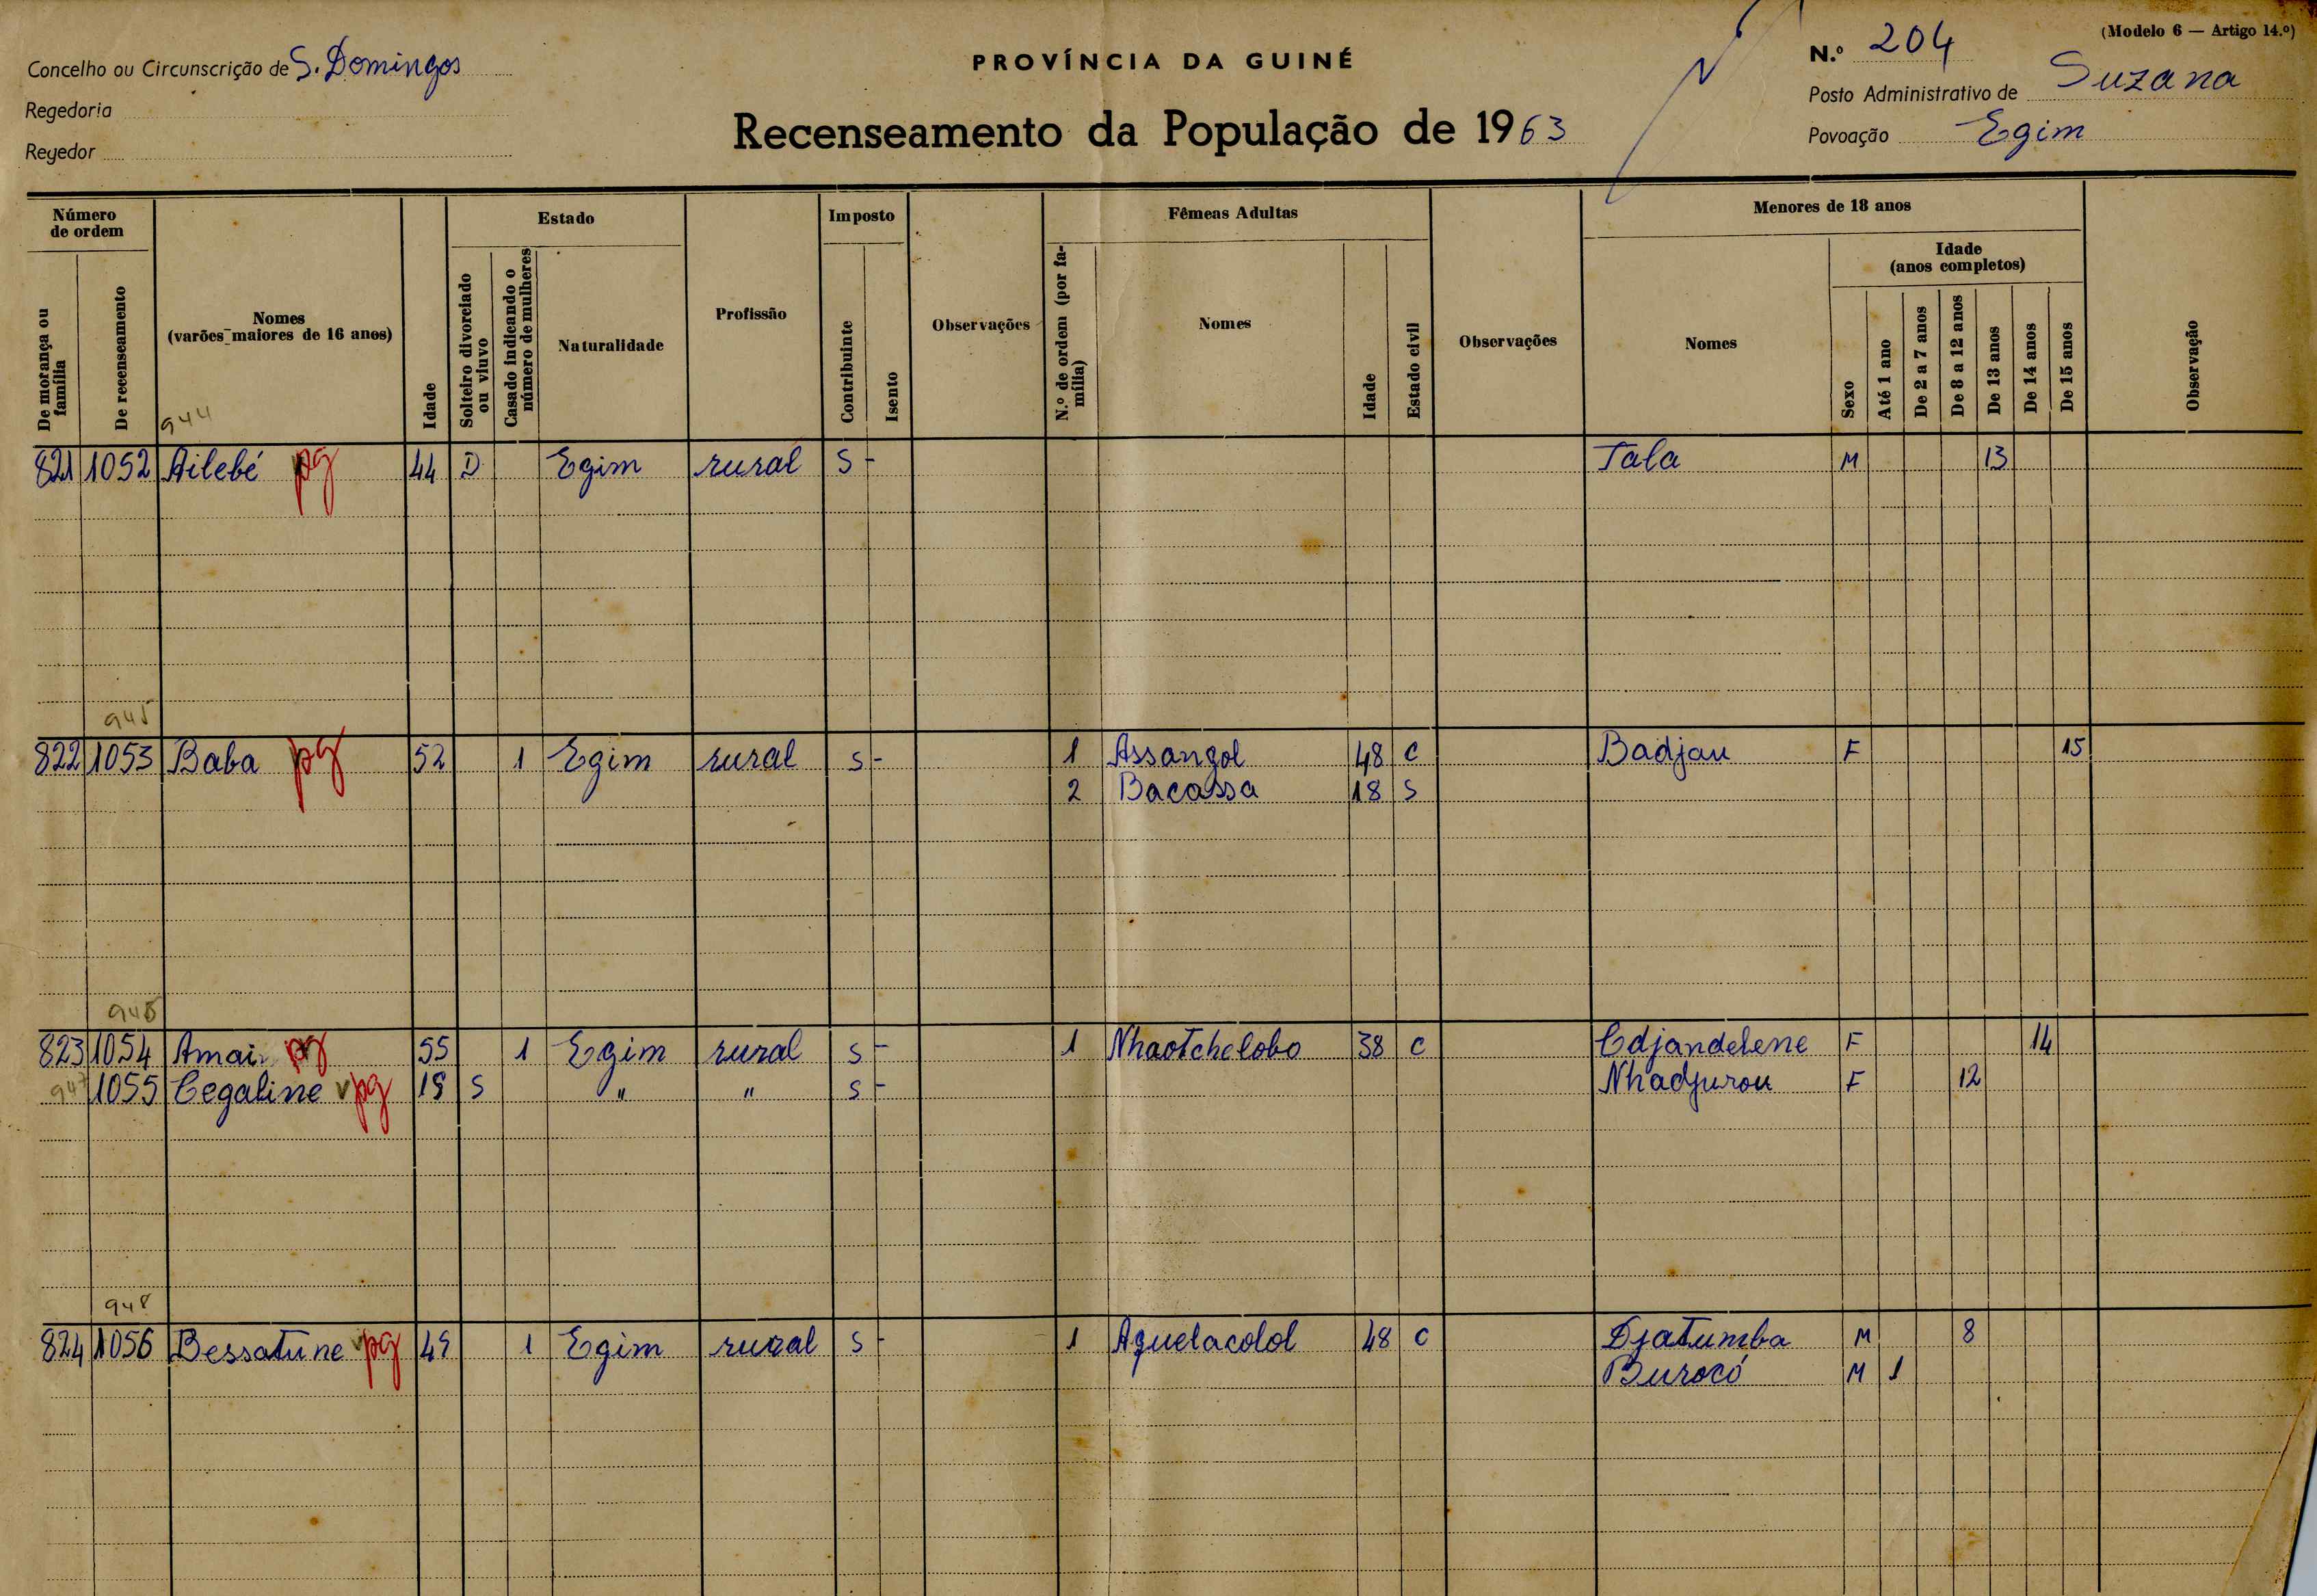 (Modelo 6 — Artigo 14.º)
Concelho ou Circunscrição de S. Domingos
PROVÍNCIA DA GUINÉ
N.º 204
Regedoria
Posto Administrativo de Suzana
Regedor
Recenseamento da População de 1963
Povoação Egim
Número de ordem
De morança ou família
De recenseamento
Nomes (varões maiores de 16 anos)
Idade
Estado
Solteiro divorciado ou viuvo
Casado indicando o número de mulheres
Naturalidade
Profissão
Imposto
Contribuinte
Isento
Observações
Fêmeas Adultas
N.º de ordem (por família)
Nomes
Idade
Estado civil
Observações
Menores de 18 anos
Nomes
Sexo
Idade (anos completos)
Até 1 ano
De 2 a 7 anos
De 8 a 12 anos
De 13 anos
De 14 anos
De 15 anos
Observação
944
821 1052 Ailebé pg 44 D Egim rural S - Tala M 13
945
822 1053 Baba pg 52 1 Egim rural S - 1 Assangol 48 C Badjau F 15
2 Bacassa 18 S
946
823 1054 Amai pg 55 1 Egim rural S - 1 Nhaotchelobo 38 C Edjandelene F 14
947 1055 Cegaline pg 19 S " " S - Nhadjurou F 12
948
824 1056 Bessatune pg 49 1 Egim rural S - 1 Aquelacolol 48 C Djatumba M 8
Burocó M 1